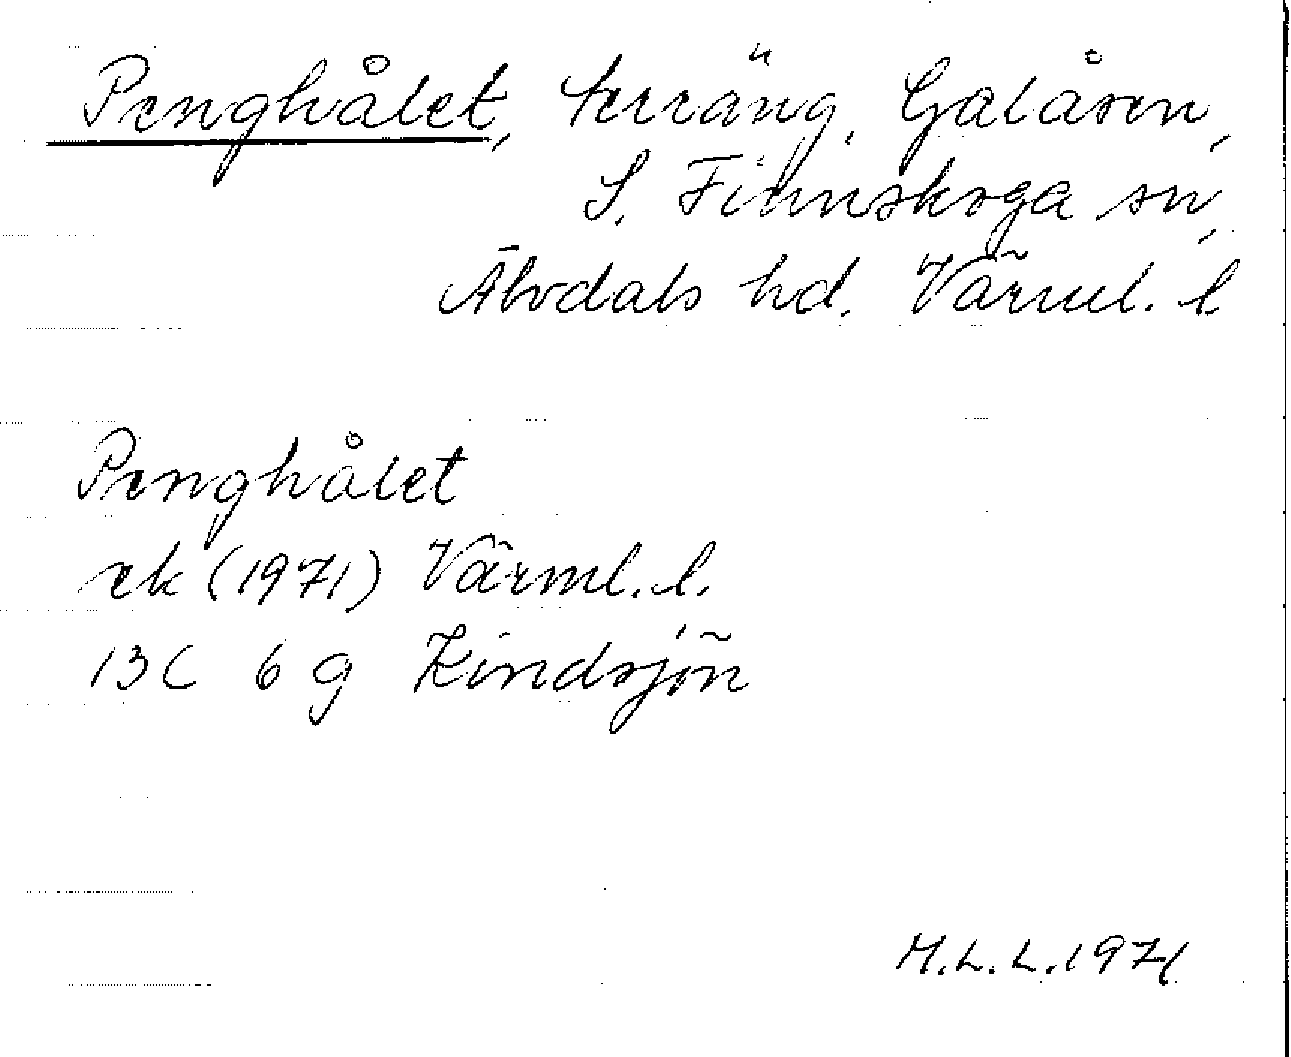 Penghålet, terräng, Galåsen,
S. Finnskoga sn,
Älvdals hd. Värml. l
Penghålet
ek (1971) Värml. l.
13C 6 g Kindsjön
M.L.L. 1971